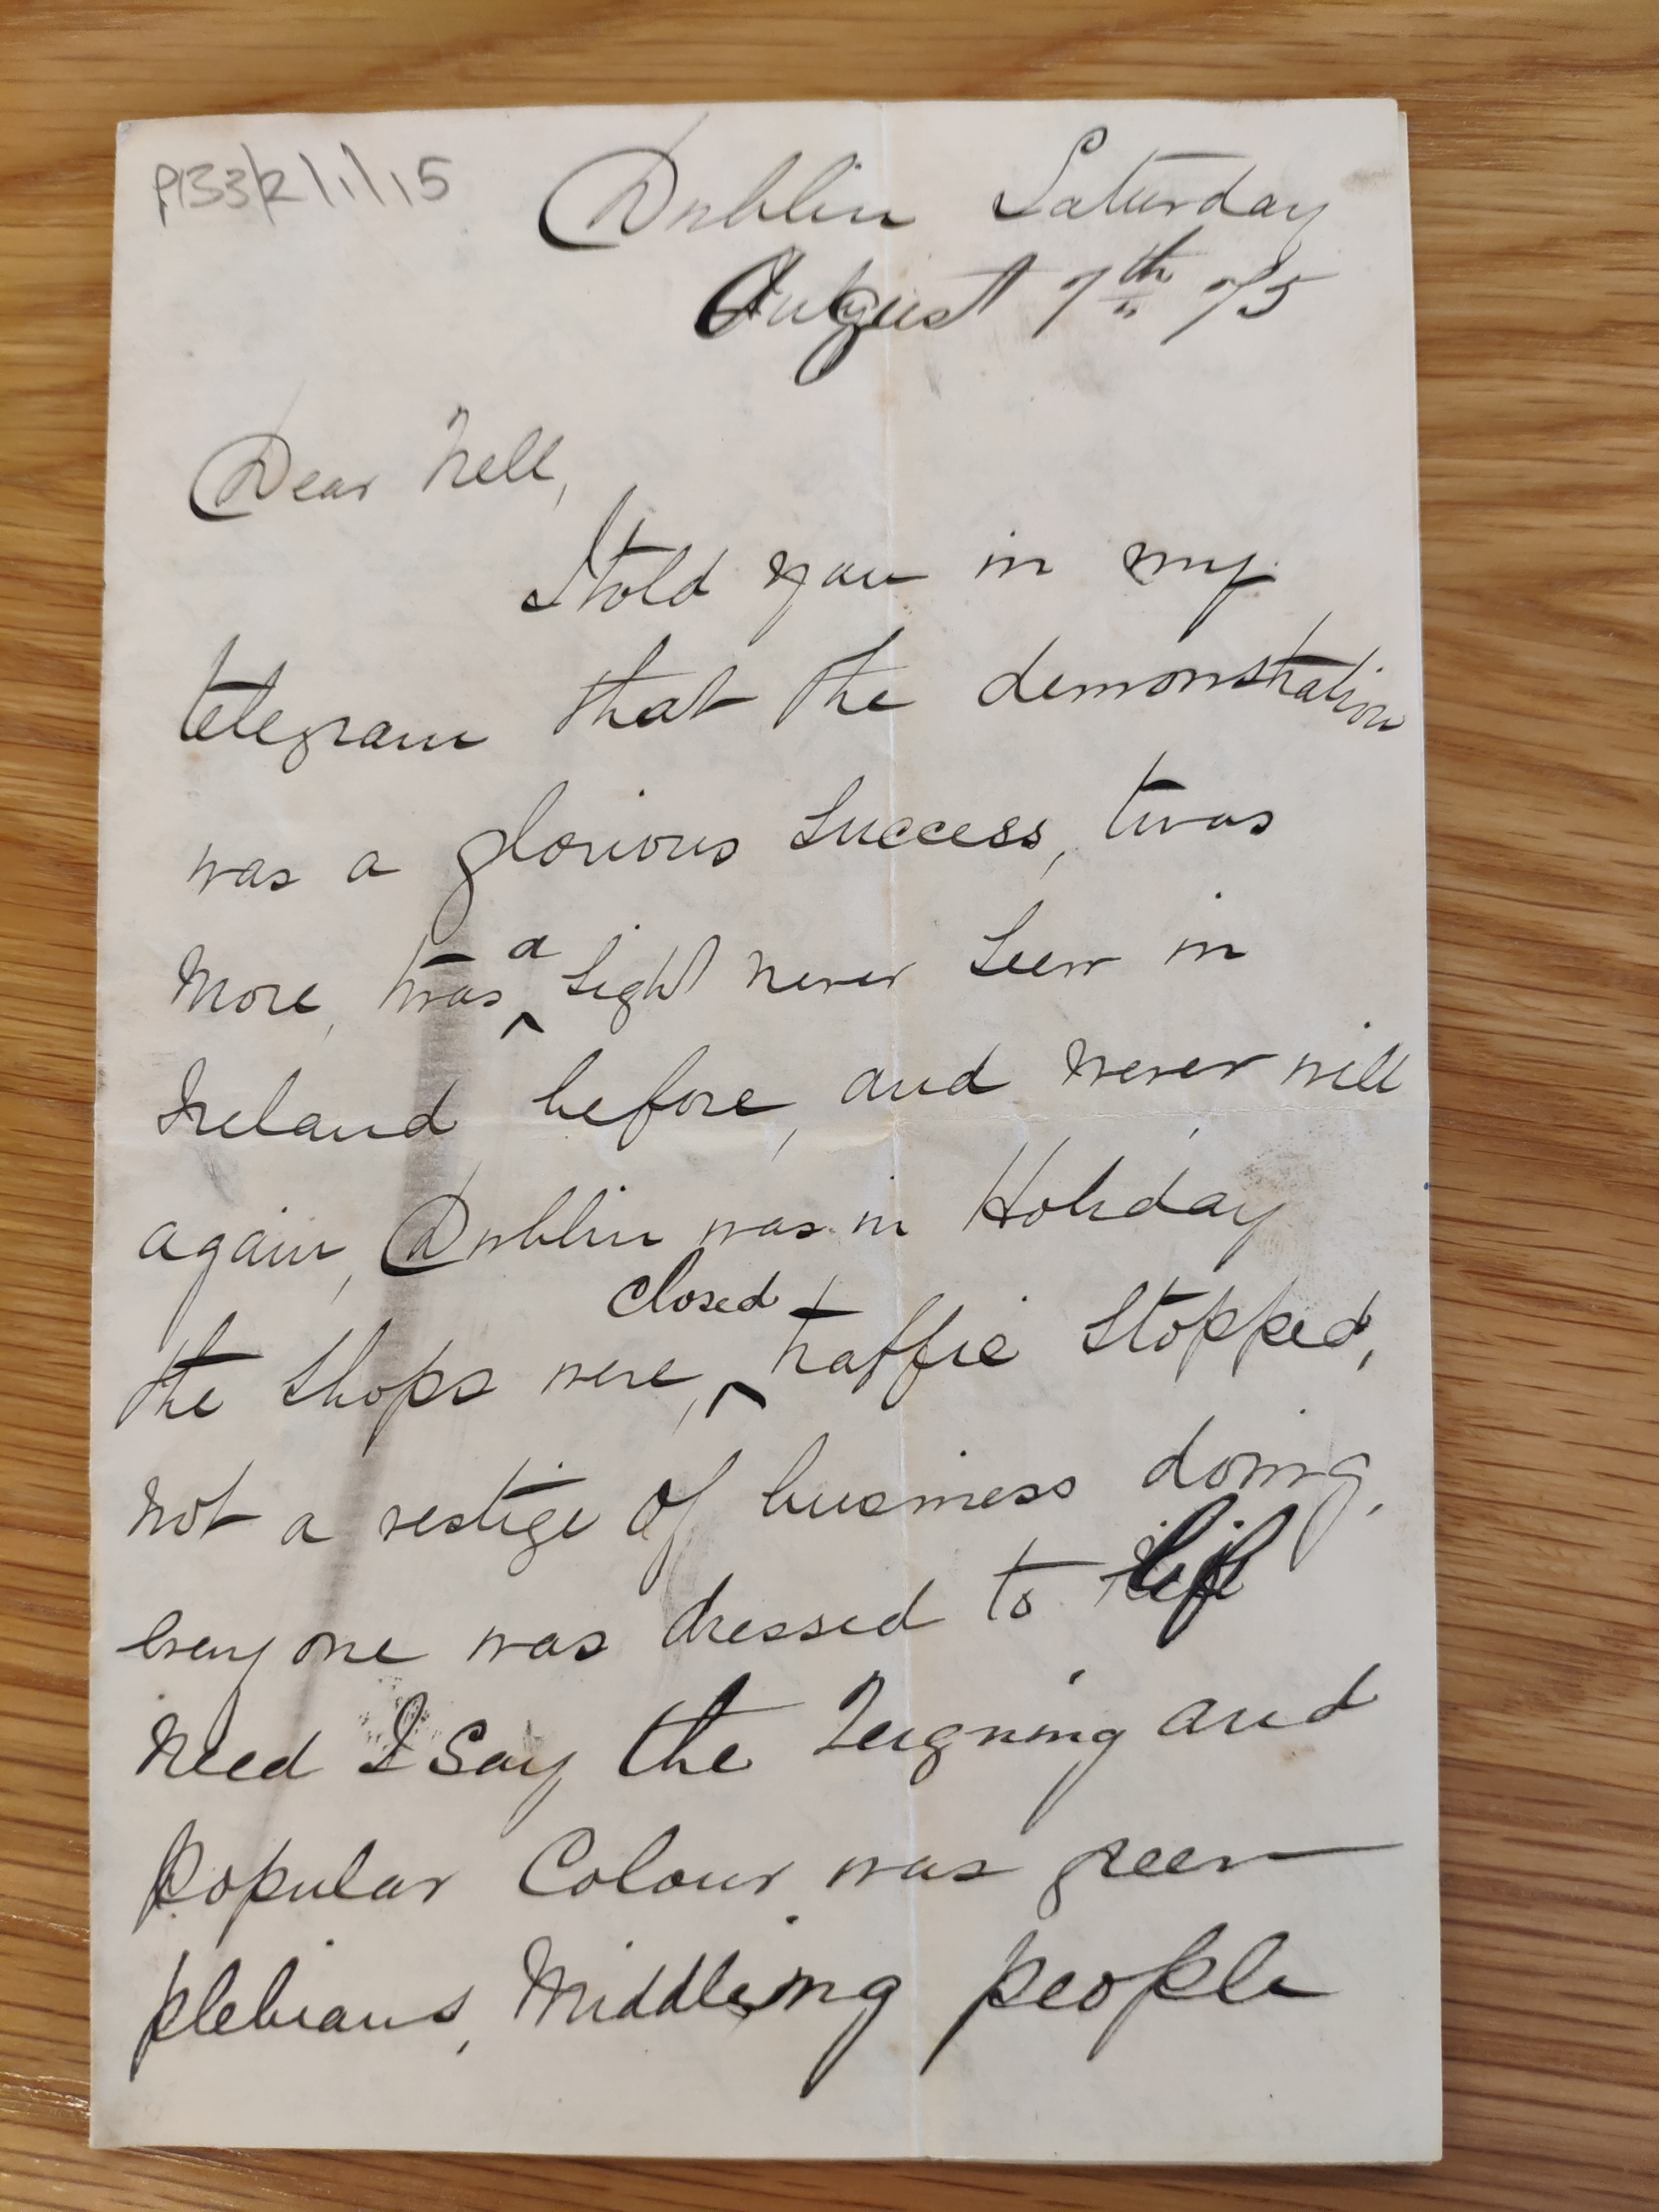 P133/2/1/15
Dublin Saturday
August 7th 75
Dear Nell,
I told you in my
telegram that the demonstration
was a glorious success, twas
more, twas ^ a sight never seen in
Ireland before, and never will
again, Dublin was in Holiday
the shops were, ^ closed traffic stopped,
not a vestige of business doing,
every one was dressed to
need I say the Reigning and
Popular Colour was green
plebians, Middleing people